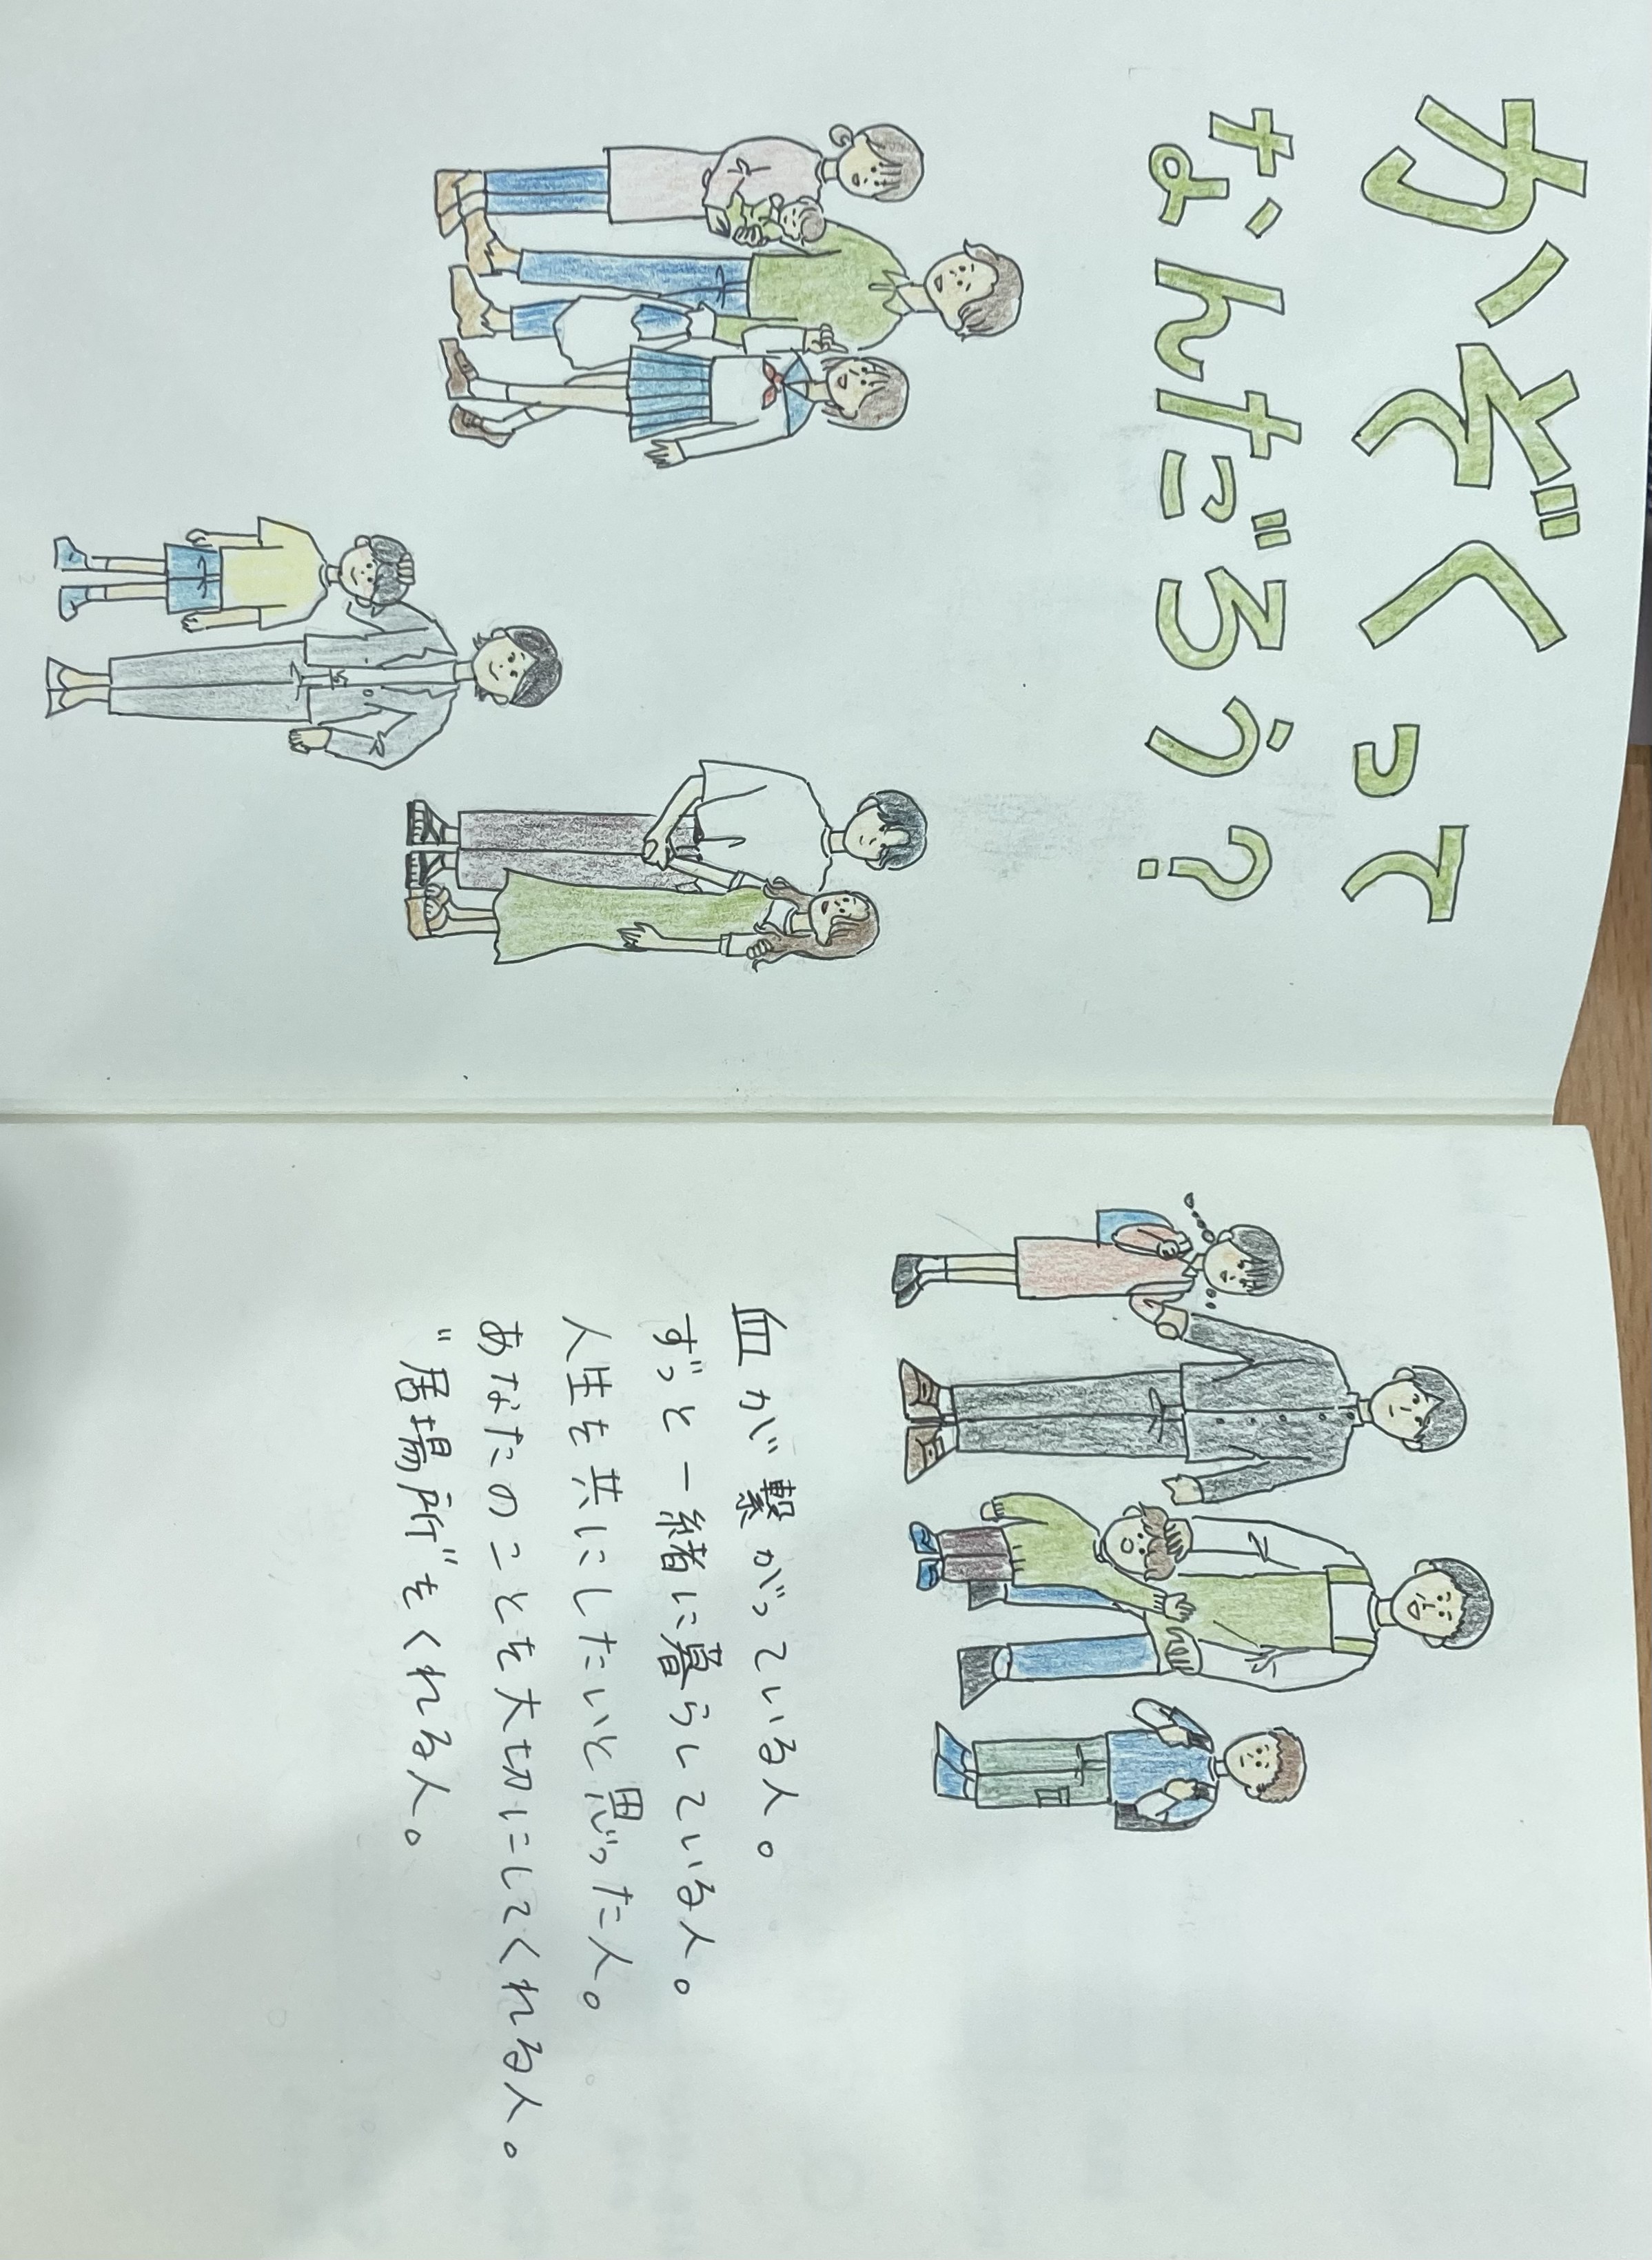 かぞくって
なんだろう?
血が繋がっている人。
ずっと一緒に暮らしている人。
人生を共にしたいと思った人。
あなたのことを大切にしてくれる人。
"居場所"をくれる人。